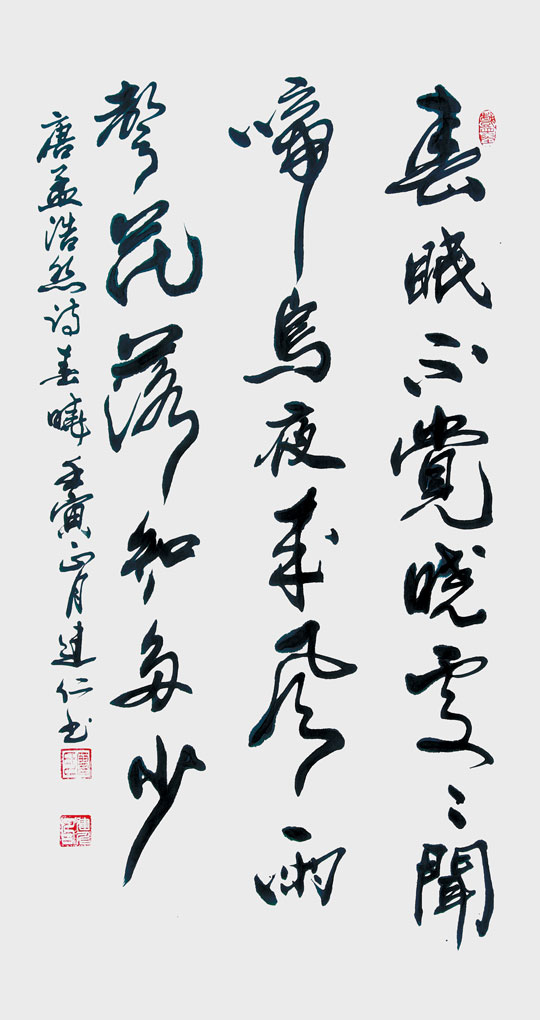 春眠不覺曉處〻聞
啼鳥夜来風雨
聲花落知多少
唐孟浩然诗春曉壬寅正月建仁书